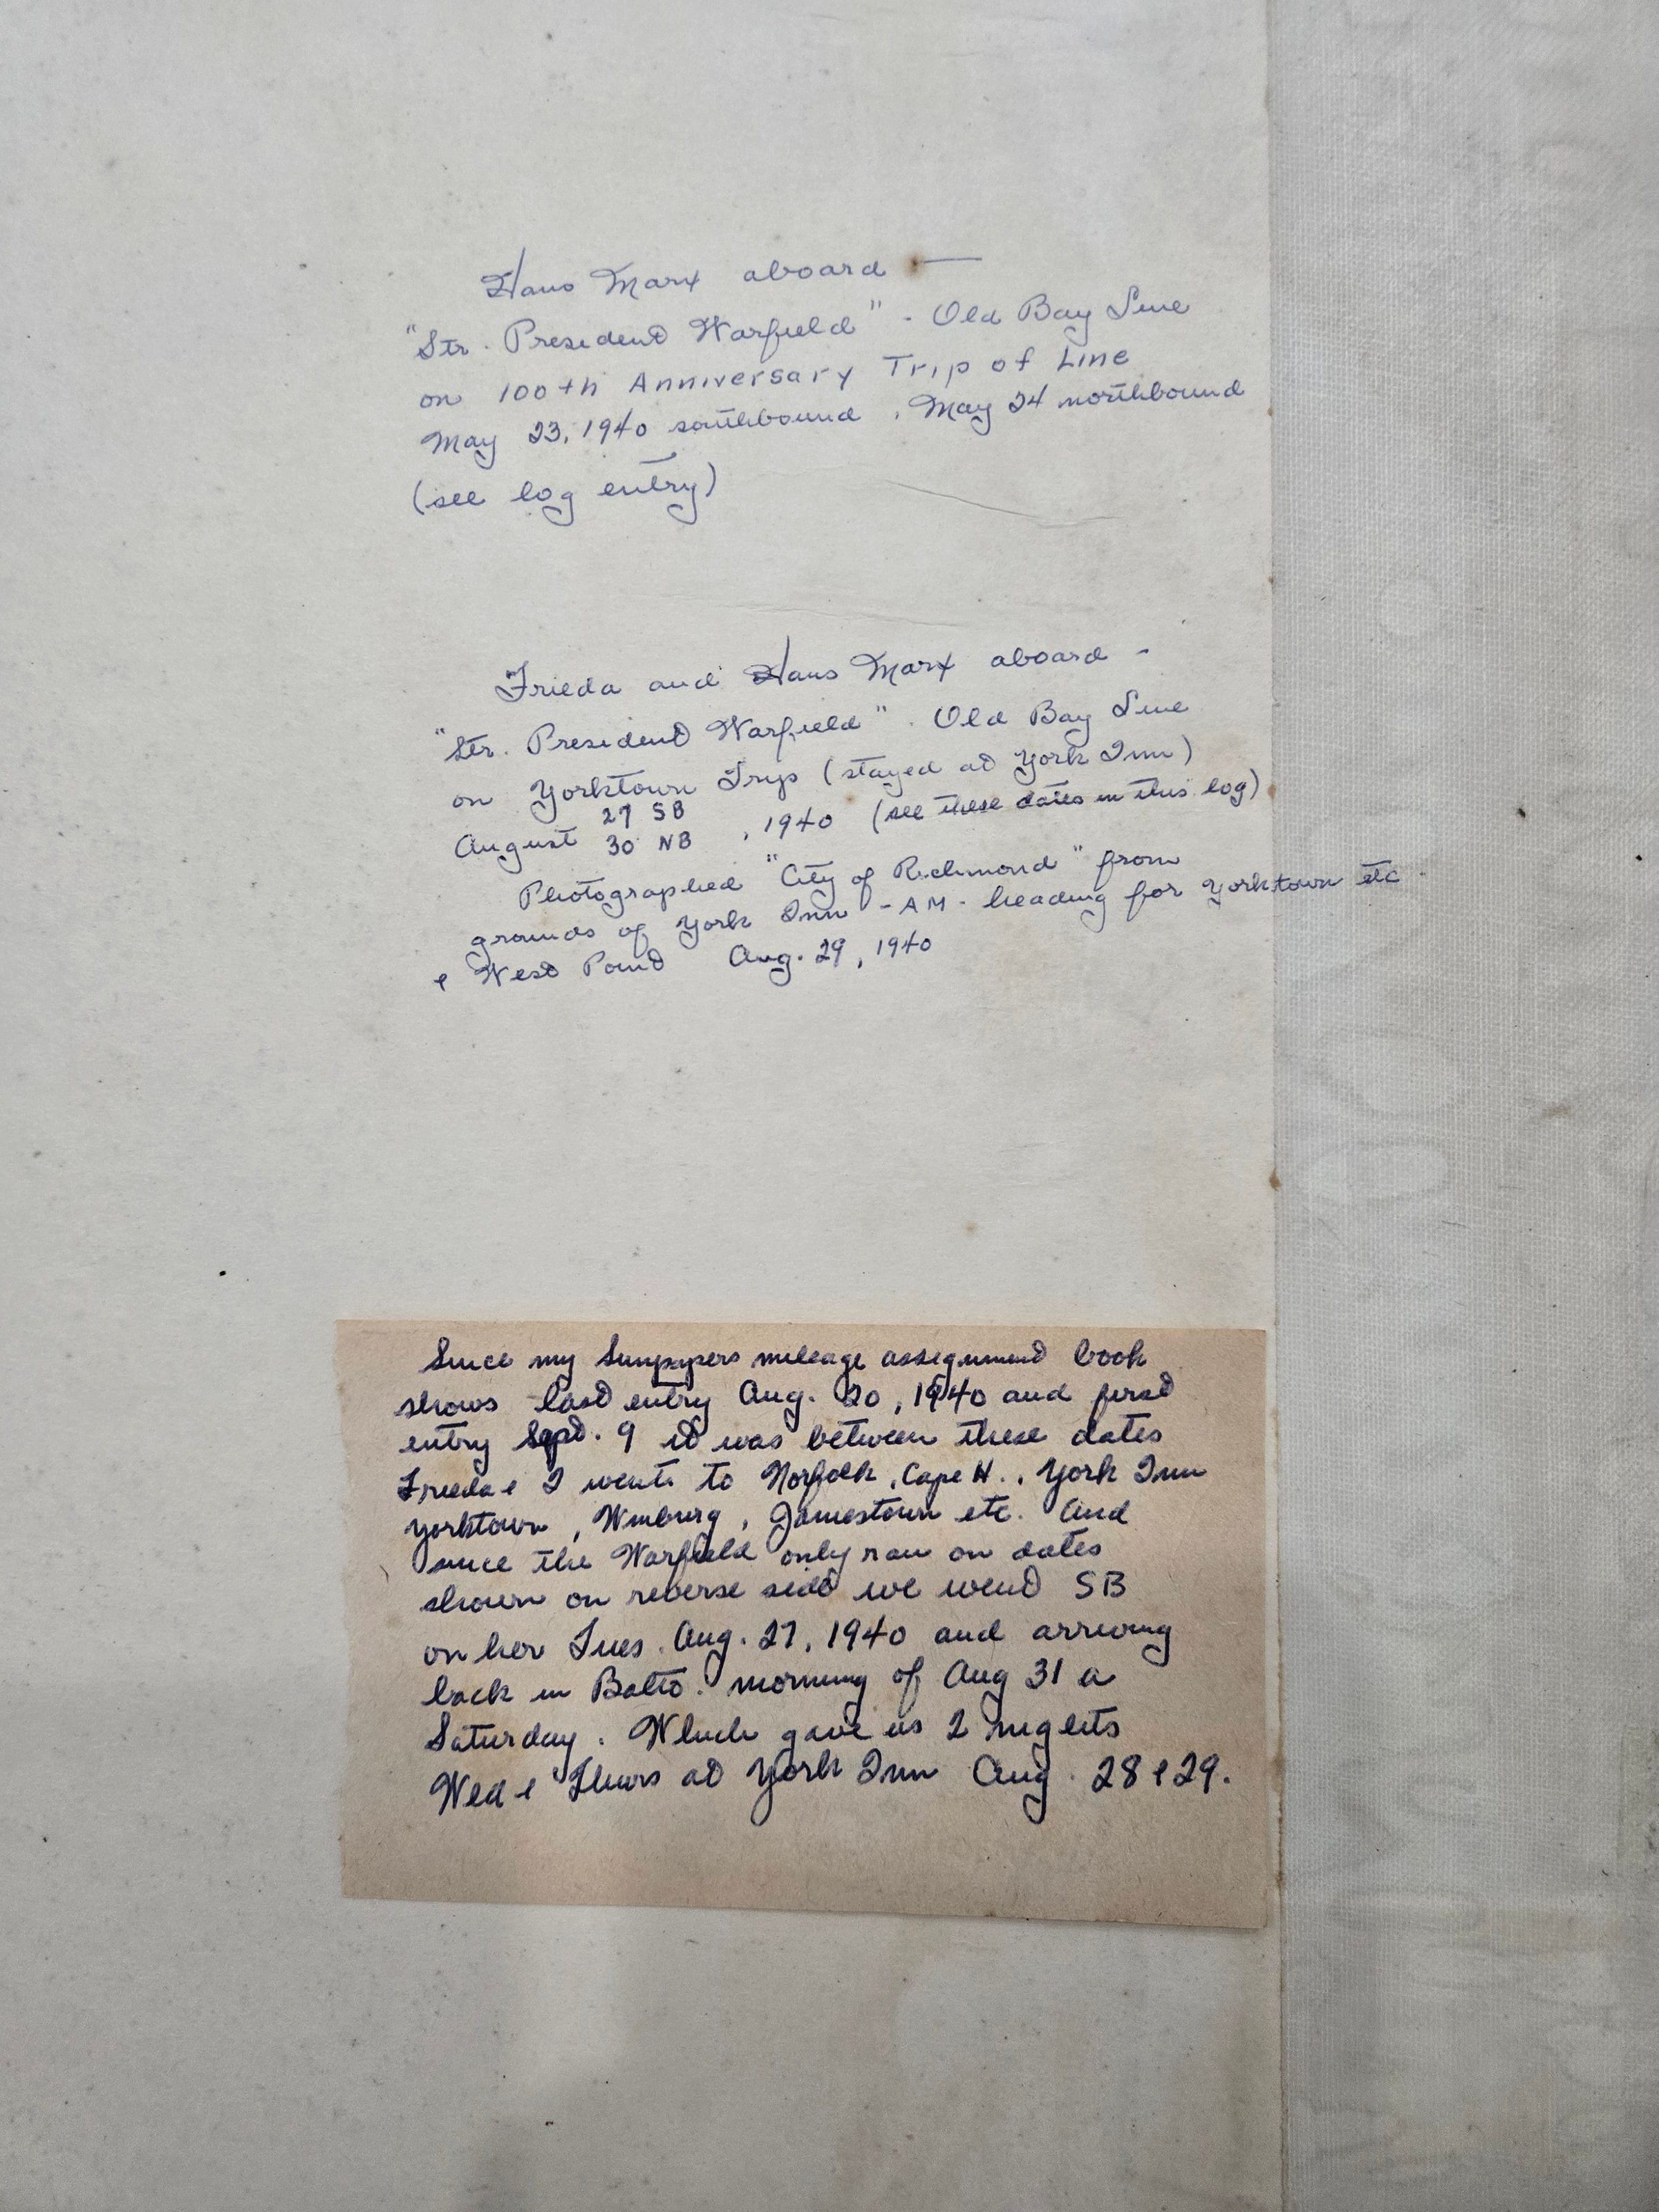 Hans Marx aboard —
"Str. President Warfield" - Old Bay Line
on 100th Anniversary Trip of Line
May 23, 1940 southbound, May 24 northbound
(see log entry)
Frieda and Hans Marx aboard -
"Str. President Warfield" - Old Bay Line
on Yorktown Trip (stayed at York Inn)
August 27 SB 30 NB, 1940 (see these dates in this log)
Photographed "City of Richmond" from
grounds of York Inn - AM - heading for Yorktown etc.
& West Point Aug. 29, 1940
Since my Sunpapers mileage assignment book
shows last entry Aug. 20, 1940 and first
entry Sept. 9 it was between these dates
Frieda & I went to Norfolk, Cape H., York Inn
Yorktown, Wmburg, Jamestown etc. And
since the Warfield only ran on dates
shown on reverse side we went SB
on her Tues. Aug. 27, 1940 and arriving
back in Balto. morning of Aug 31 a
Saturday. Which gave us 2 nights
Wed & Thurs at York Inn Aug. 28 & 29.